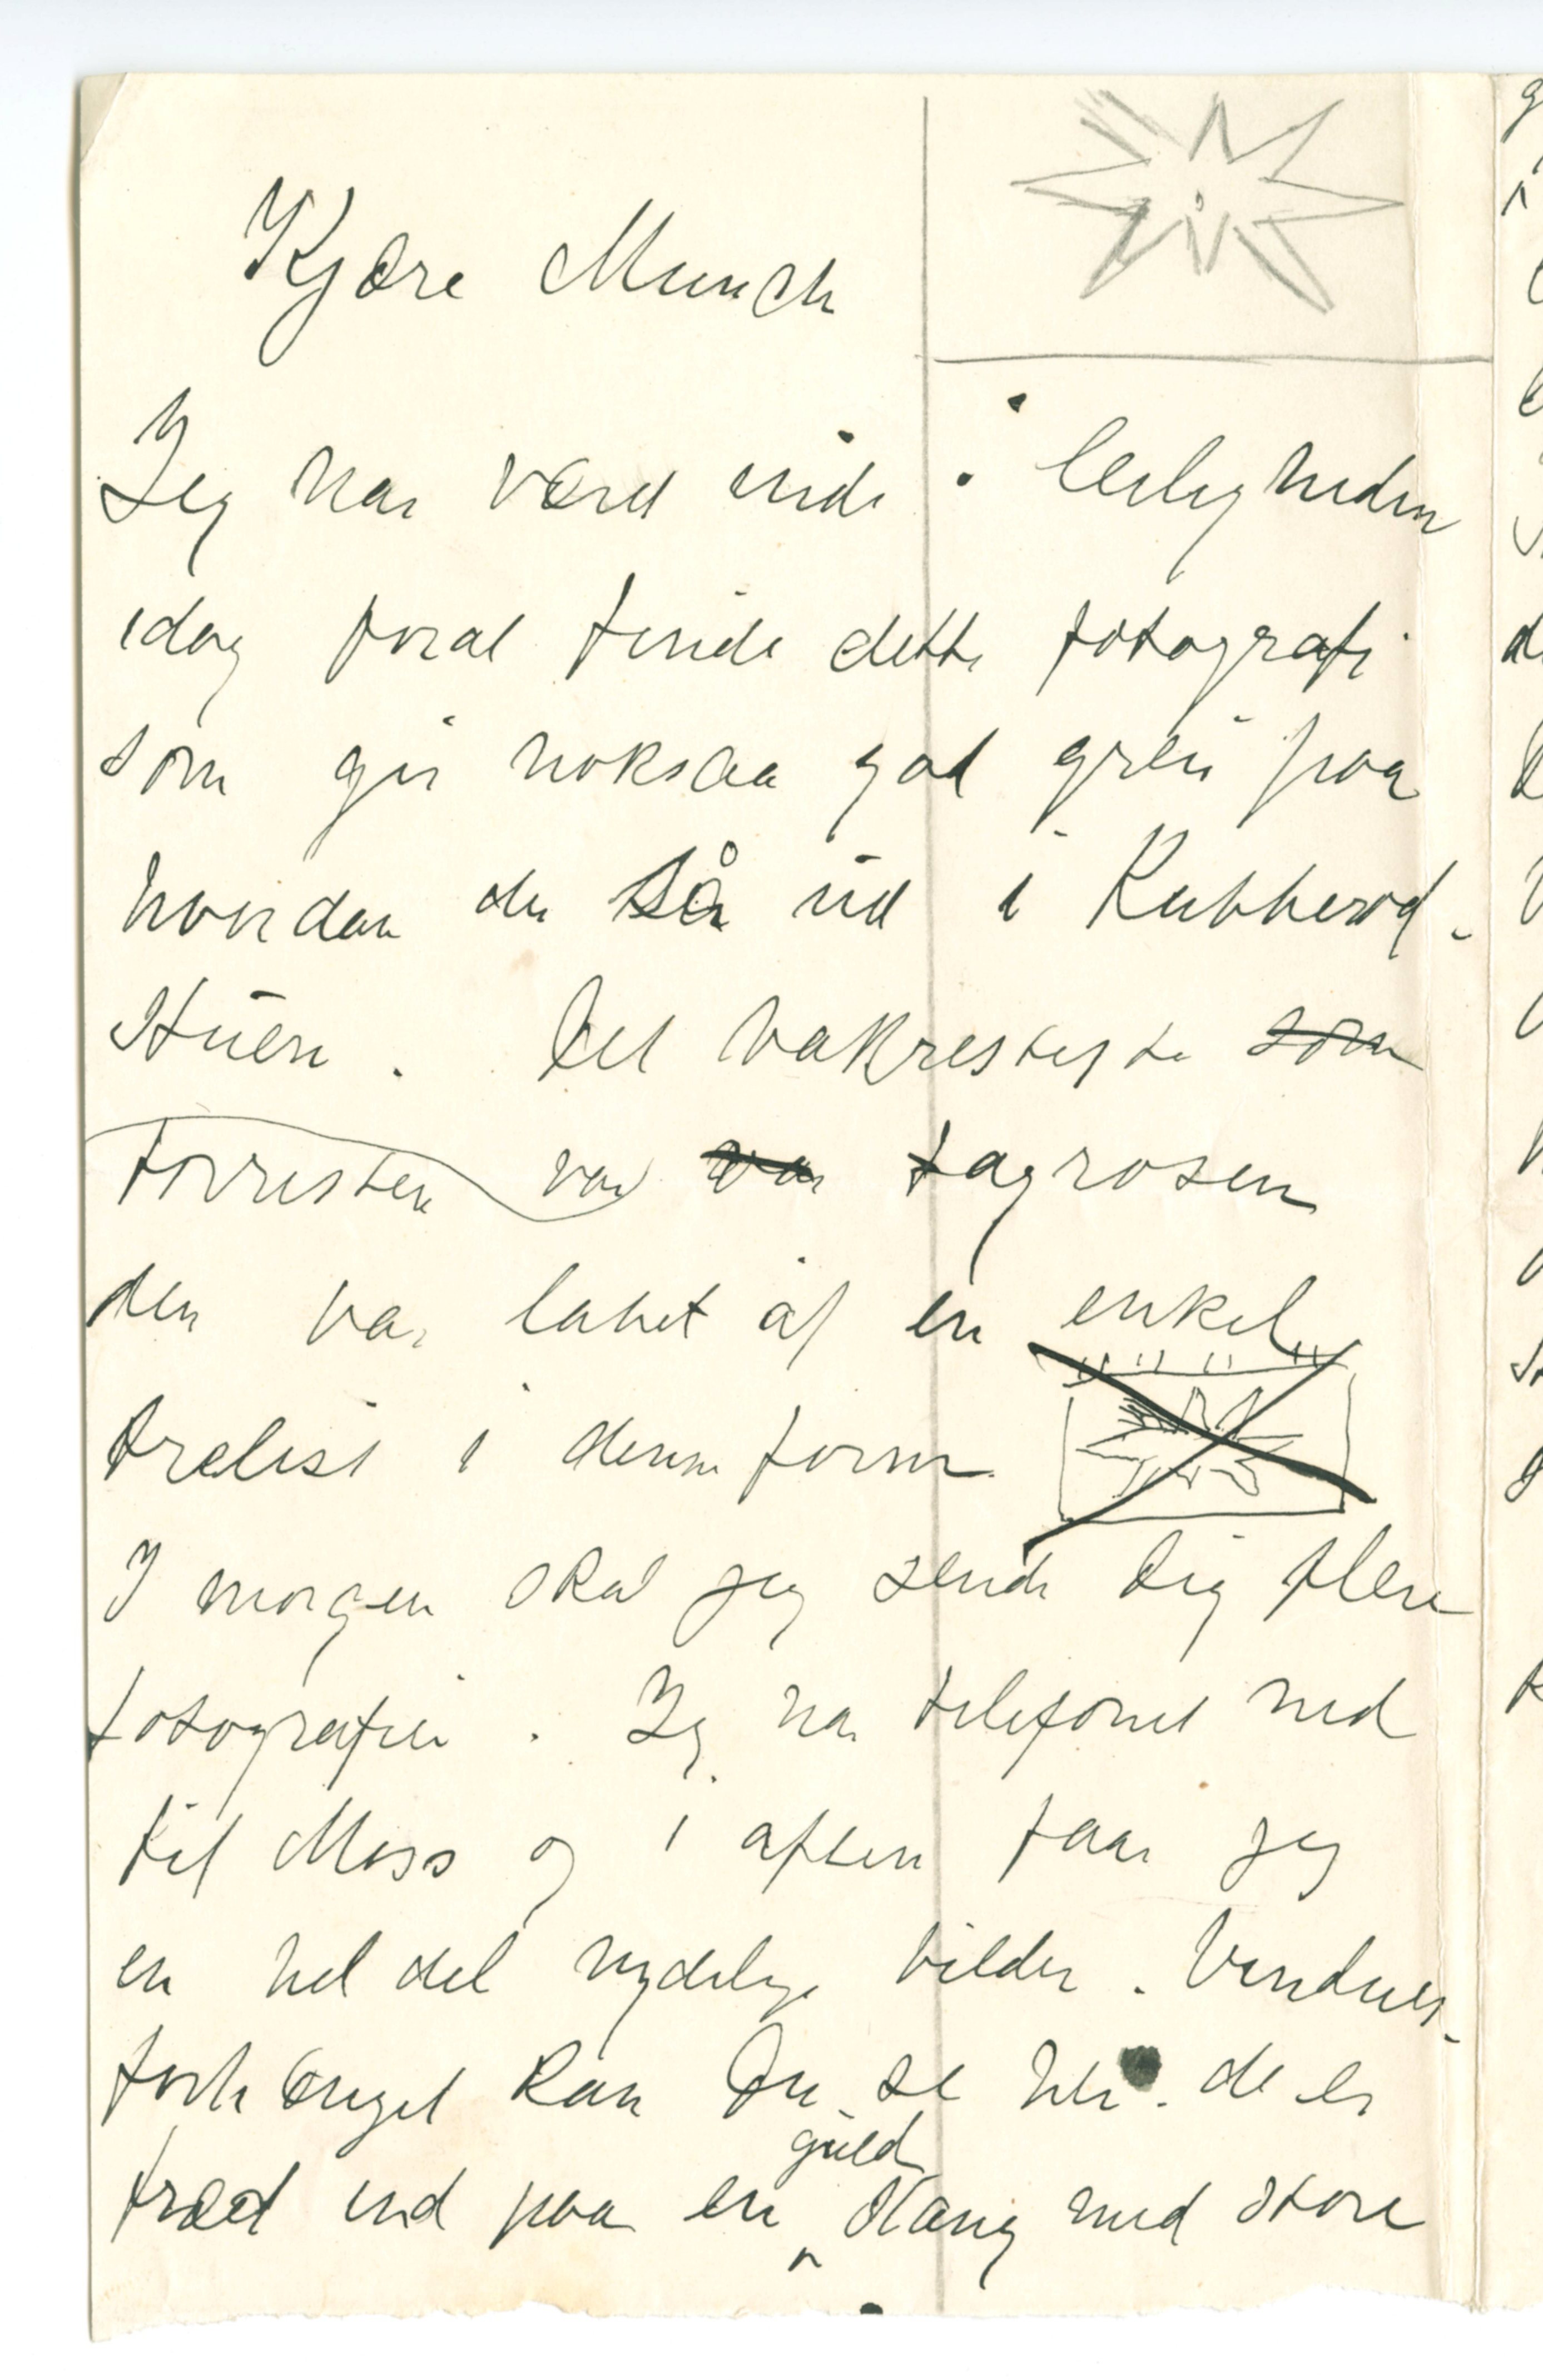 Kjære Munch
Jeg har været inde i leiligheden
idag foral finde dette fotografi
som gir noksaa god grei paa
hvordan du så ud i Rubberød-
Stuen. Det vakresteste som
forresten var var tagrosen
den var lavet af en enkel
trelist i denne form
I morgen skal jeg sende Dig flere
fotografier. Jeg har telefonet ned
til Moss og i aften faar jeg
en hel del nydelige bilder. Vindues-
forhænget kan Du se her. de er
træet ind paa en guld stang med store